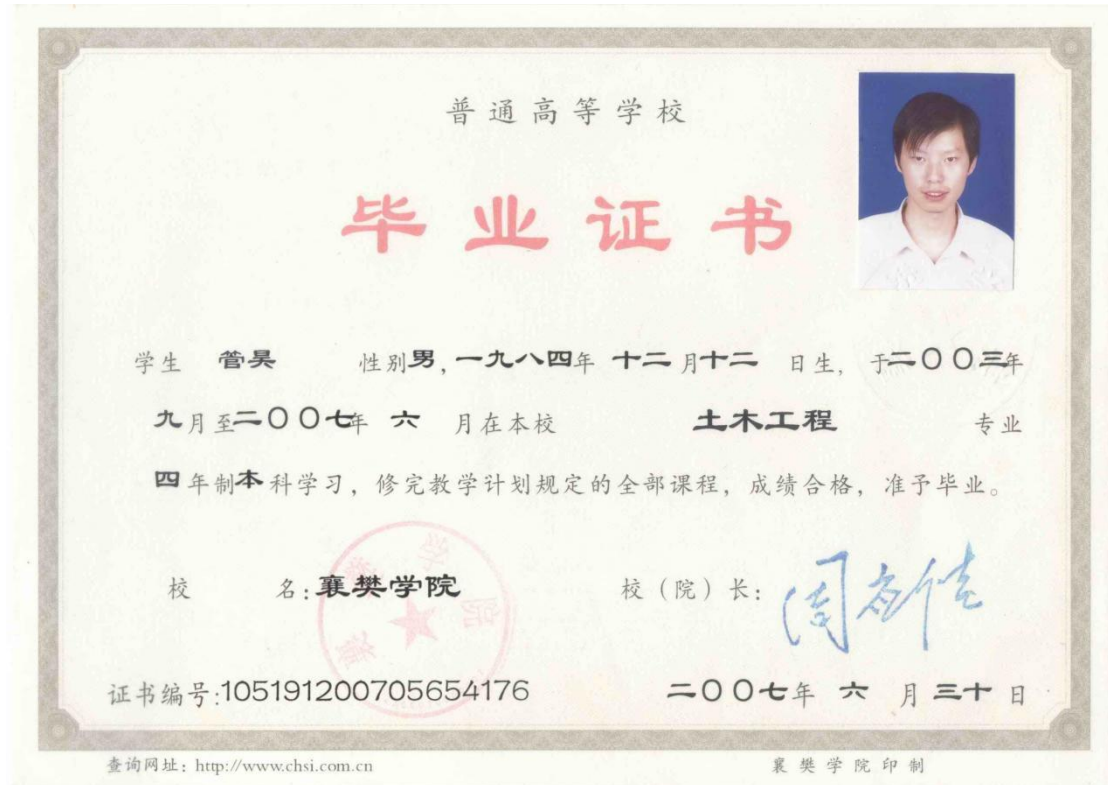 普通高等学校
毕业证书
学生 管昊 性别男,一九八四年 十二月十二 日生, 于二〇〇三年
九月至二〇〇七年 六 月在本校 土木工程 专业
四年制本科学习, 修完教学计划规定的全部课程, 成绩合格, 准予毕业。
校 名:襄樊学院 校(院)长:
证书编号:105191200705654176 二〇〇七年 六 月 三十 日
查询网址: http://www.chsi.com.cn 襄樊学院印制